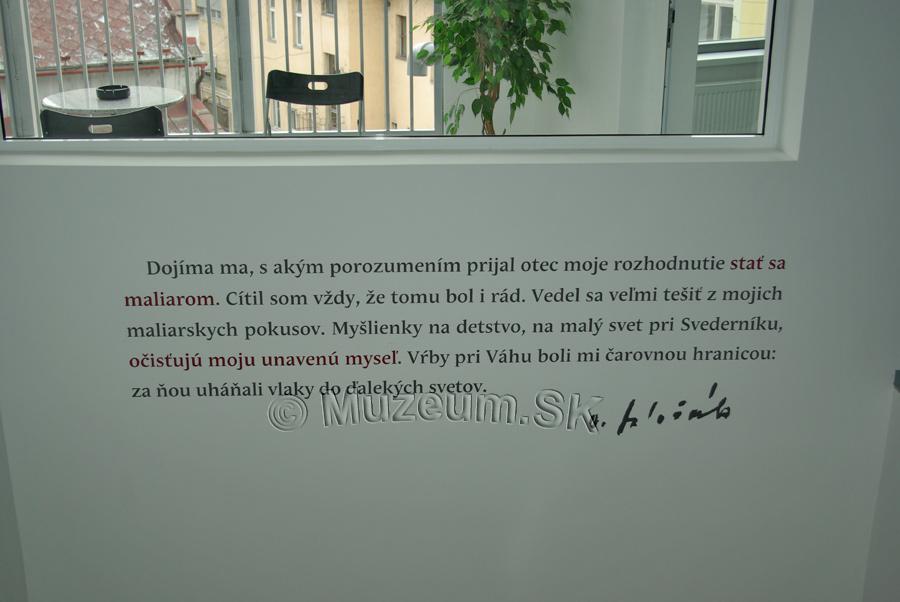 Dojíma ma, s akým porozumením prijal otec moje rozhodnutie stať sa
maliarom. Cítil som vždy, že tomu bol i rád. Vedel sa veľmi tešiť z mojich
maliarskych pokusov. Myšlienky na detstvo, na malý svet pri Svederníku,
očisťujú moju unavenú myseľ. Vŕby pri Váhu boli mi čarovnou hranicou:
za ňou uháňali vlaky do ďalekých svetov.
© Muzeum.SK